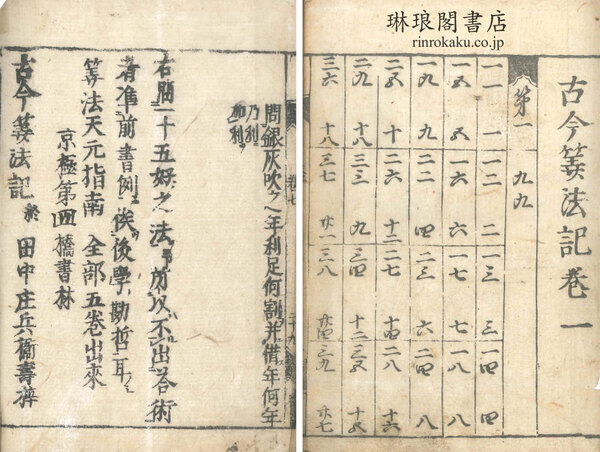 琳琅閣書店
rinrokaku.co.jp
古今筭法記巻一
第一 九九
一一 一 一二 二 一三 三 一四 四
一五 五 一六 六 一七 七 一八 八
一九 九 二二 四 二三 六 二四 八
二五 十 二六 十二 二七 十四 二八 十六
二九 十八 三三 九 三四 十二 三五 十五
三六 十八 三七 廿一 三八 廿四 三九 廿七
巻七
問銀灰吹之年利足何割并借年何年
乃利
加利
右問一十五好之法 所以不出答術
者准前書例俟後學勘哲耳
筭法天元指南 全部五巻出來
京極第四橋書林
古今筭法記終 田中庄兵衞壽梓